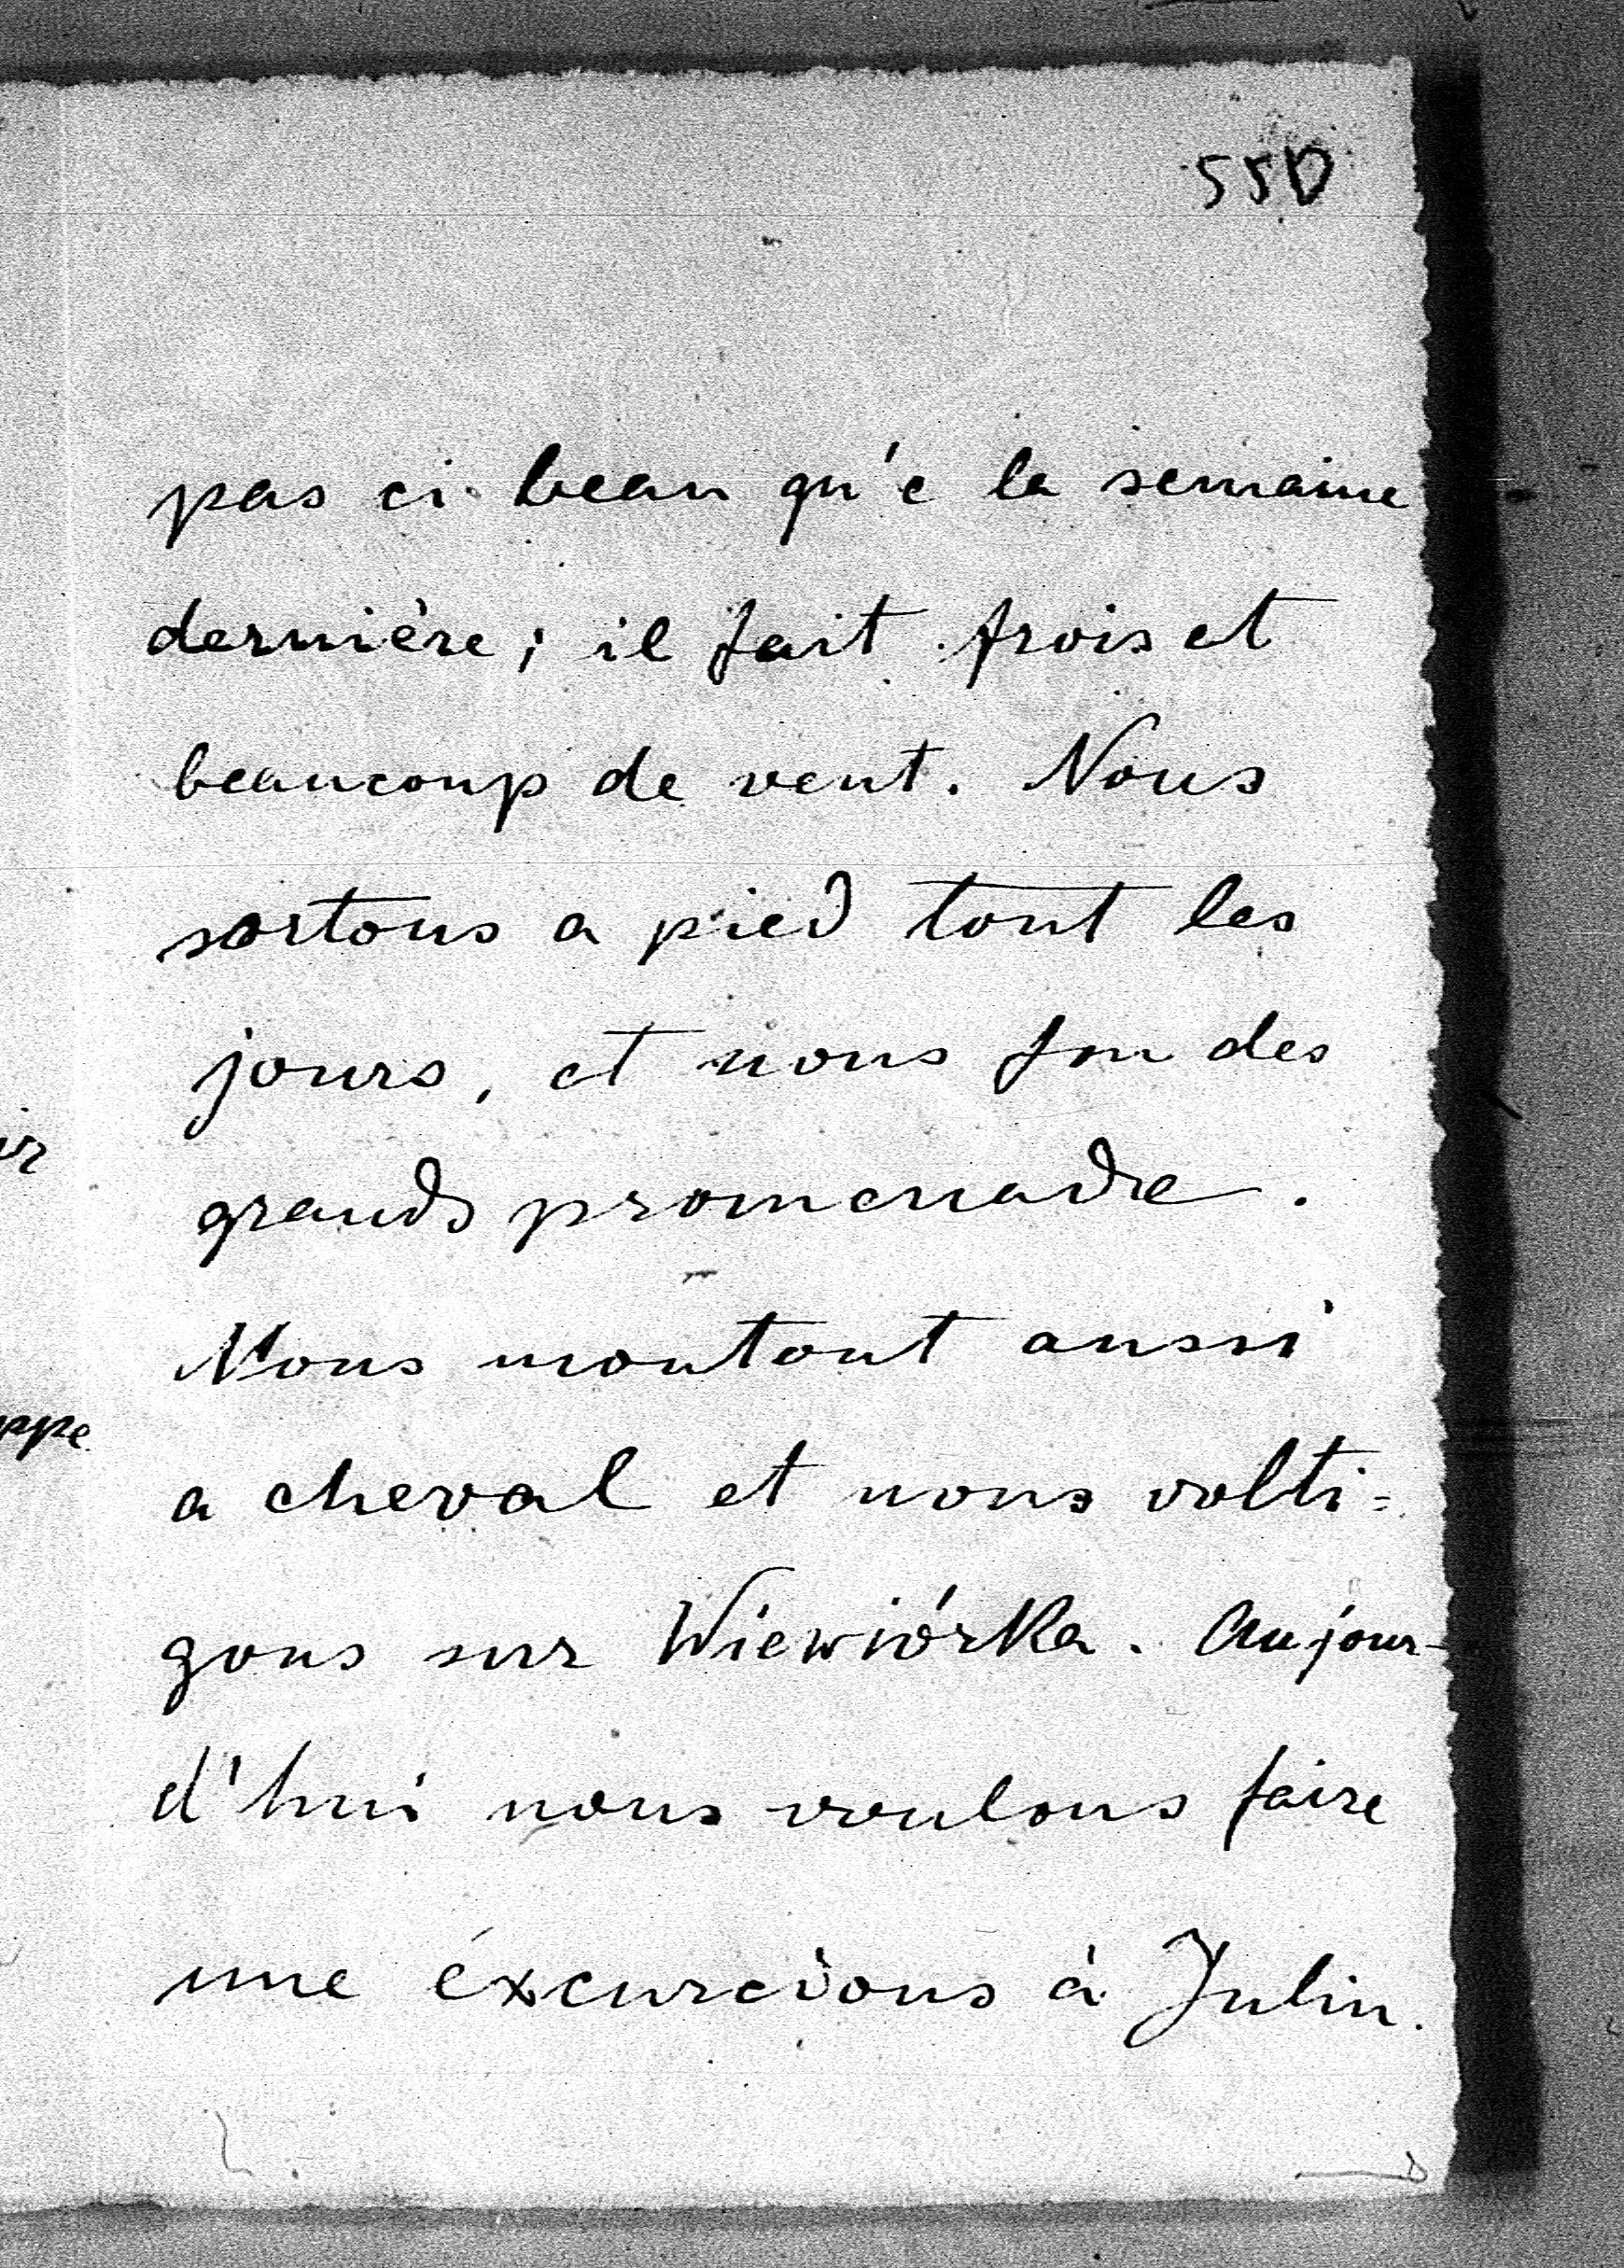 550
pas ci beau qu'e la semaine
dernière; il fait frois et
beaucoup de vent. Nous
sortons a pied tout les
jours, et nous fon des
grands promenade.
Nous montont aussi
a cheval et nous volti=
gons sur Wiewiórka. Aujour-
d'hui nous voulons faire
une éxcurcions à Julin.